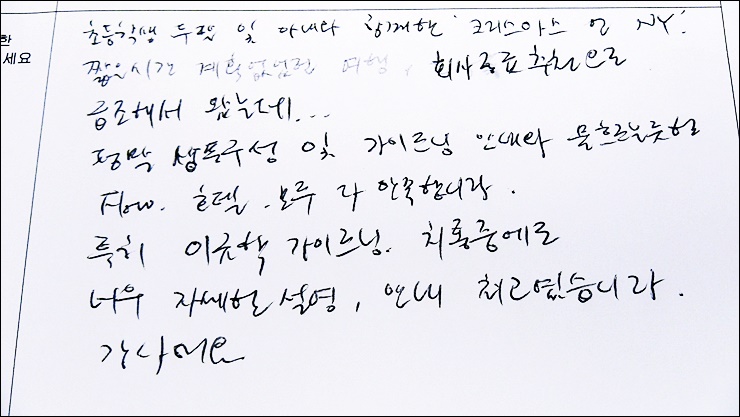 한
세요
초등학생 두딸 및 아내와 함께한 '크리스마스 인 NY'.
짧은시간 계획없었던 여행, 회사동료 추천으로
급조해서 왔는데...
정말 상품구성 및 가이드님 안내와 물흐르는듯한
Flow. 호텔. 모두 다 만족합니다.
특히 가이드님. 치통중에도
너무 자세한 설명, 안내 최고였습니다.
감사해요